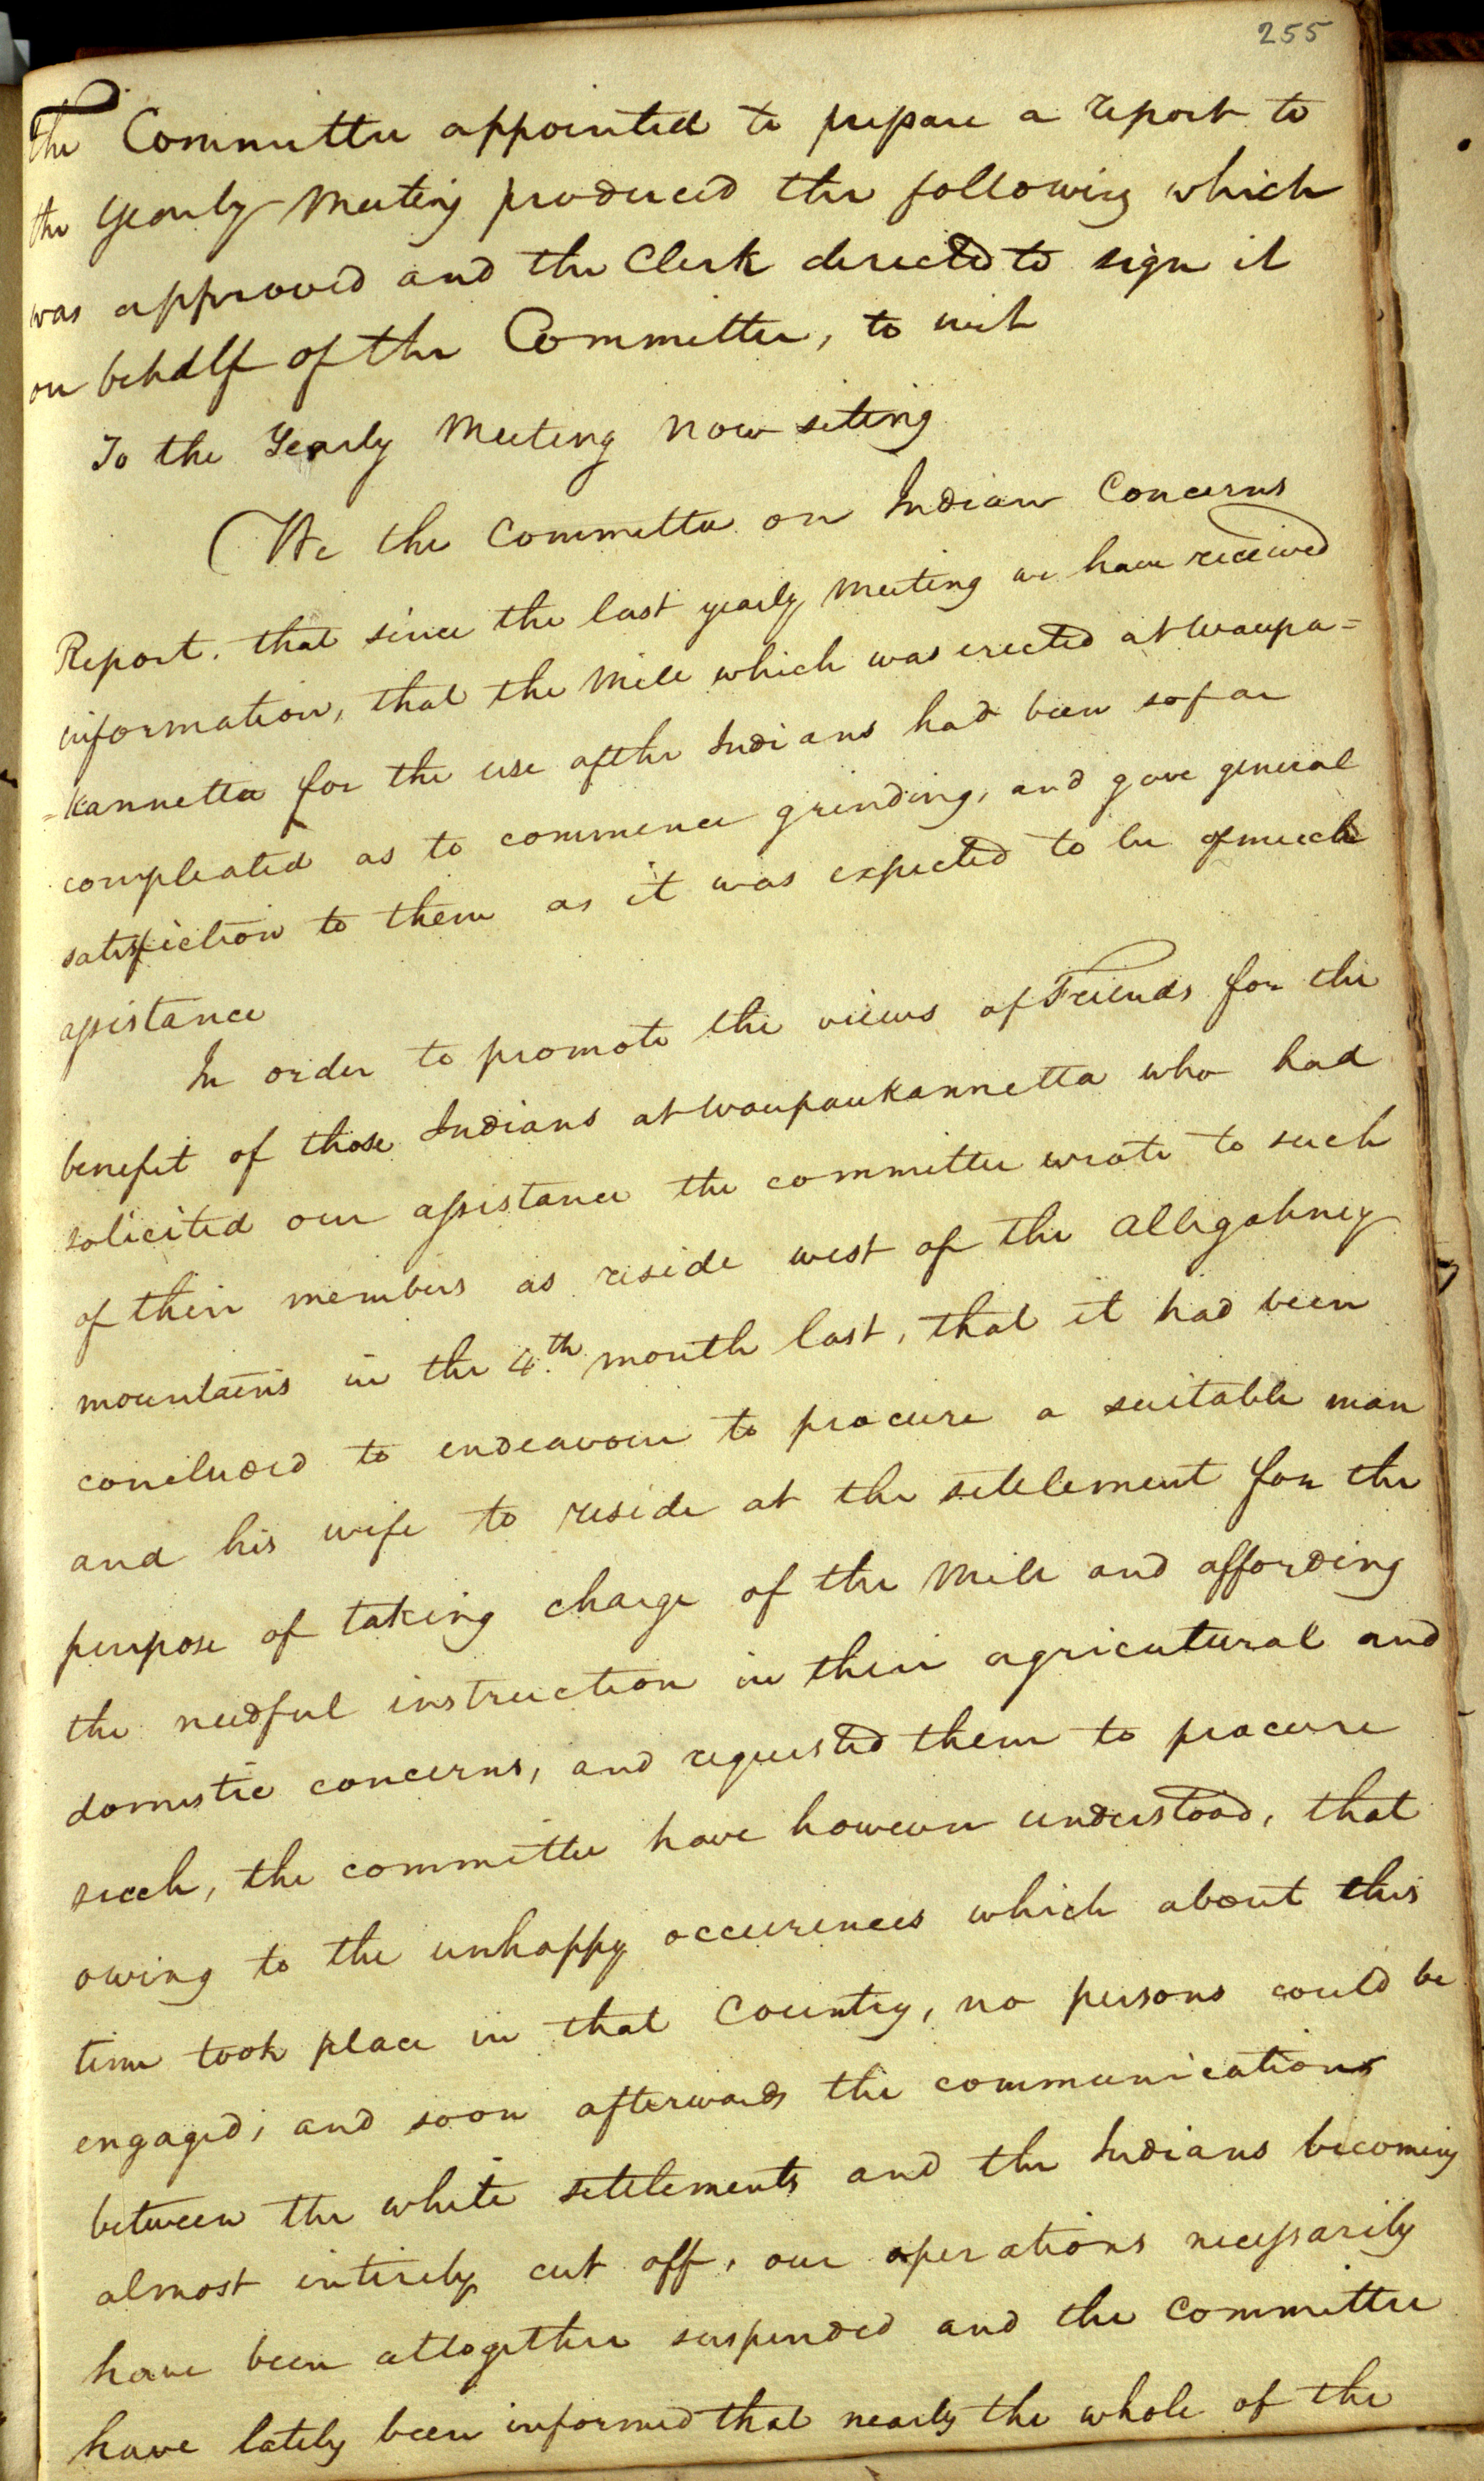 255
The Committee appointed to prepare a report to
the Yearly Meeting produced the following which
was approved and the Clerk directed to sign it
on behalf of the Committee, to wit
To the Yearly Meeting now siting
We the Committee on Indian Concerns
Report. that since the last yearly Meeting we have received
information, that the Mill which was erected at Waupa=
=kannetta for the use of the Indians had been so far
compleated as to commence grinding, and gave general
satisfiction to them as it was expected to be of much
assistance
In order to promote the views of Friends for the
benefit of those Indians at Waupaukannetta who had
solicited our assistance the committee wrote to such
of their members as reside west of the Allegahney
mountains in the 4th. month last, that it had been
concluded to endeavour to procure a suitable man
and his wife to reside at the settlement for the
purpose of taking charge of the Mill and affording
the needful instruction in their agricutural and
domestic concerns, and requested them to procure
such, the committee have however understood, that
owing to the unhappy occurences which about this
time took place in that Country, no persons could be
engaged; and soon afterwards the communications
between the white settlements and the Indians becoming
almost intirely cut off, our operations necessarily
have been altogether suspended and the Committee
have lately been informed that nearly the whole of the